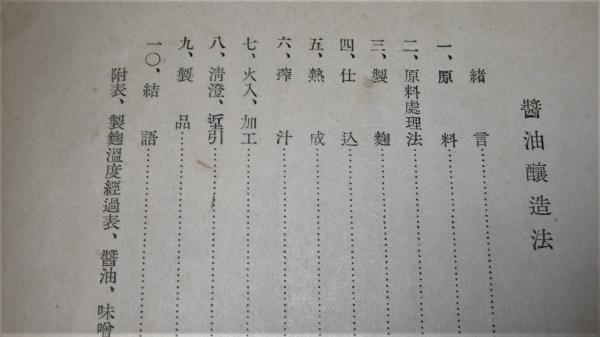 醬油釀造法
緖言
一、原料
二、原料處理法
三、製麴
四、仕込
五、熟成
六、搾汁
七、火入、加工
八、淸澄、引
九、製品
一〇、結語
附表、製麴溫度經過表、醬油、味噌